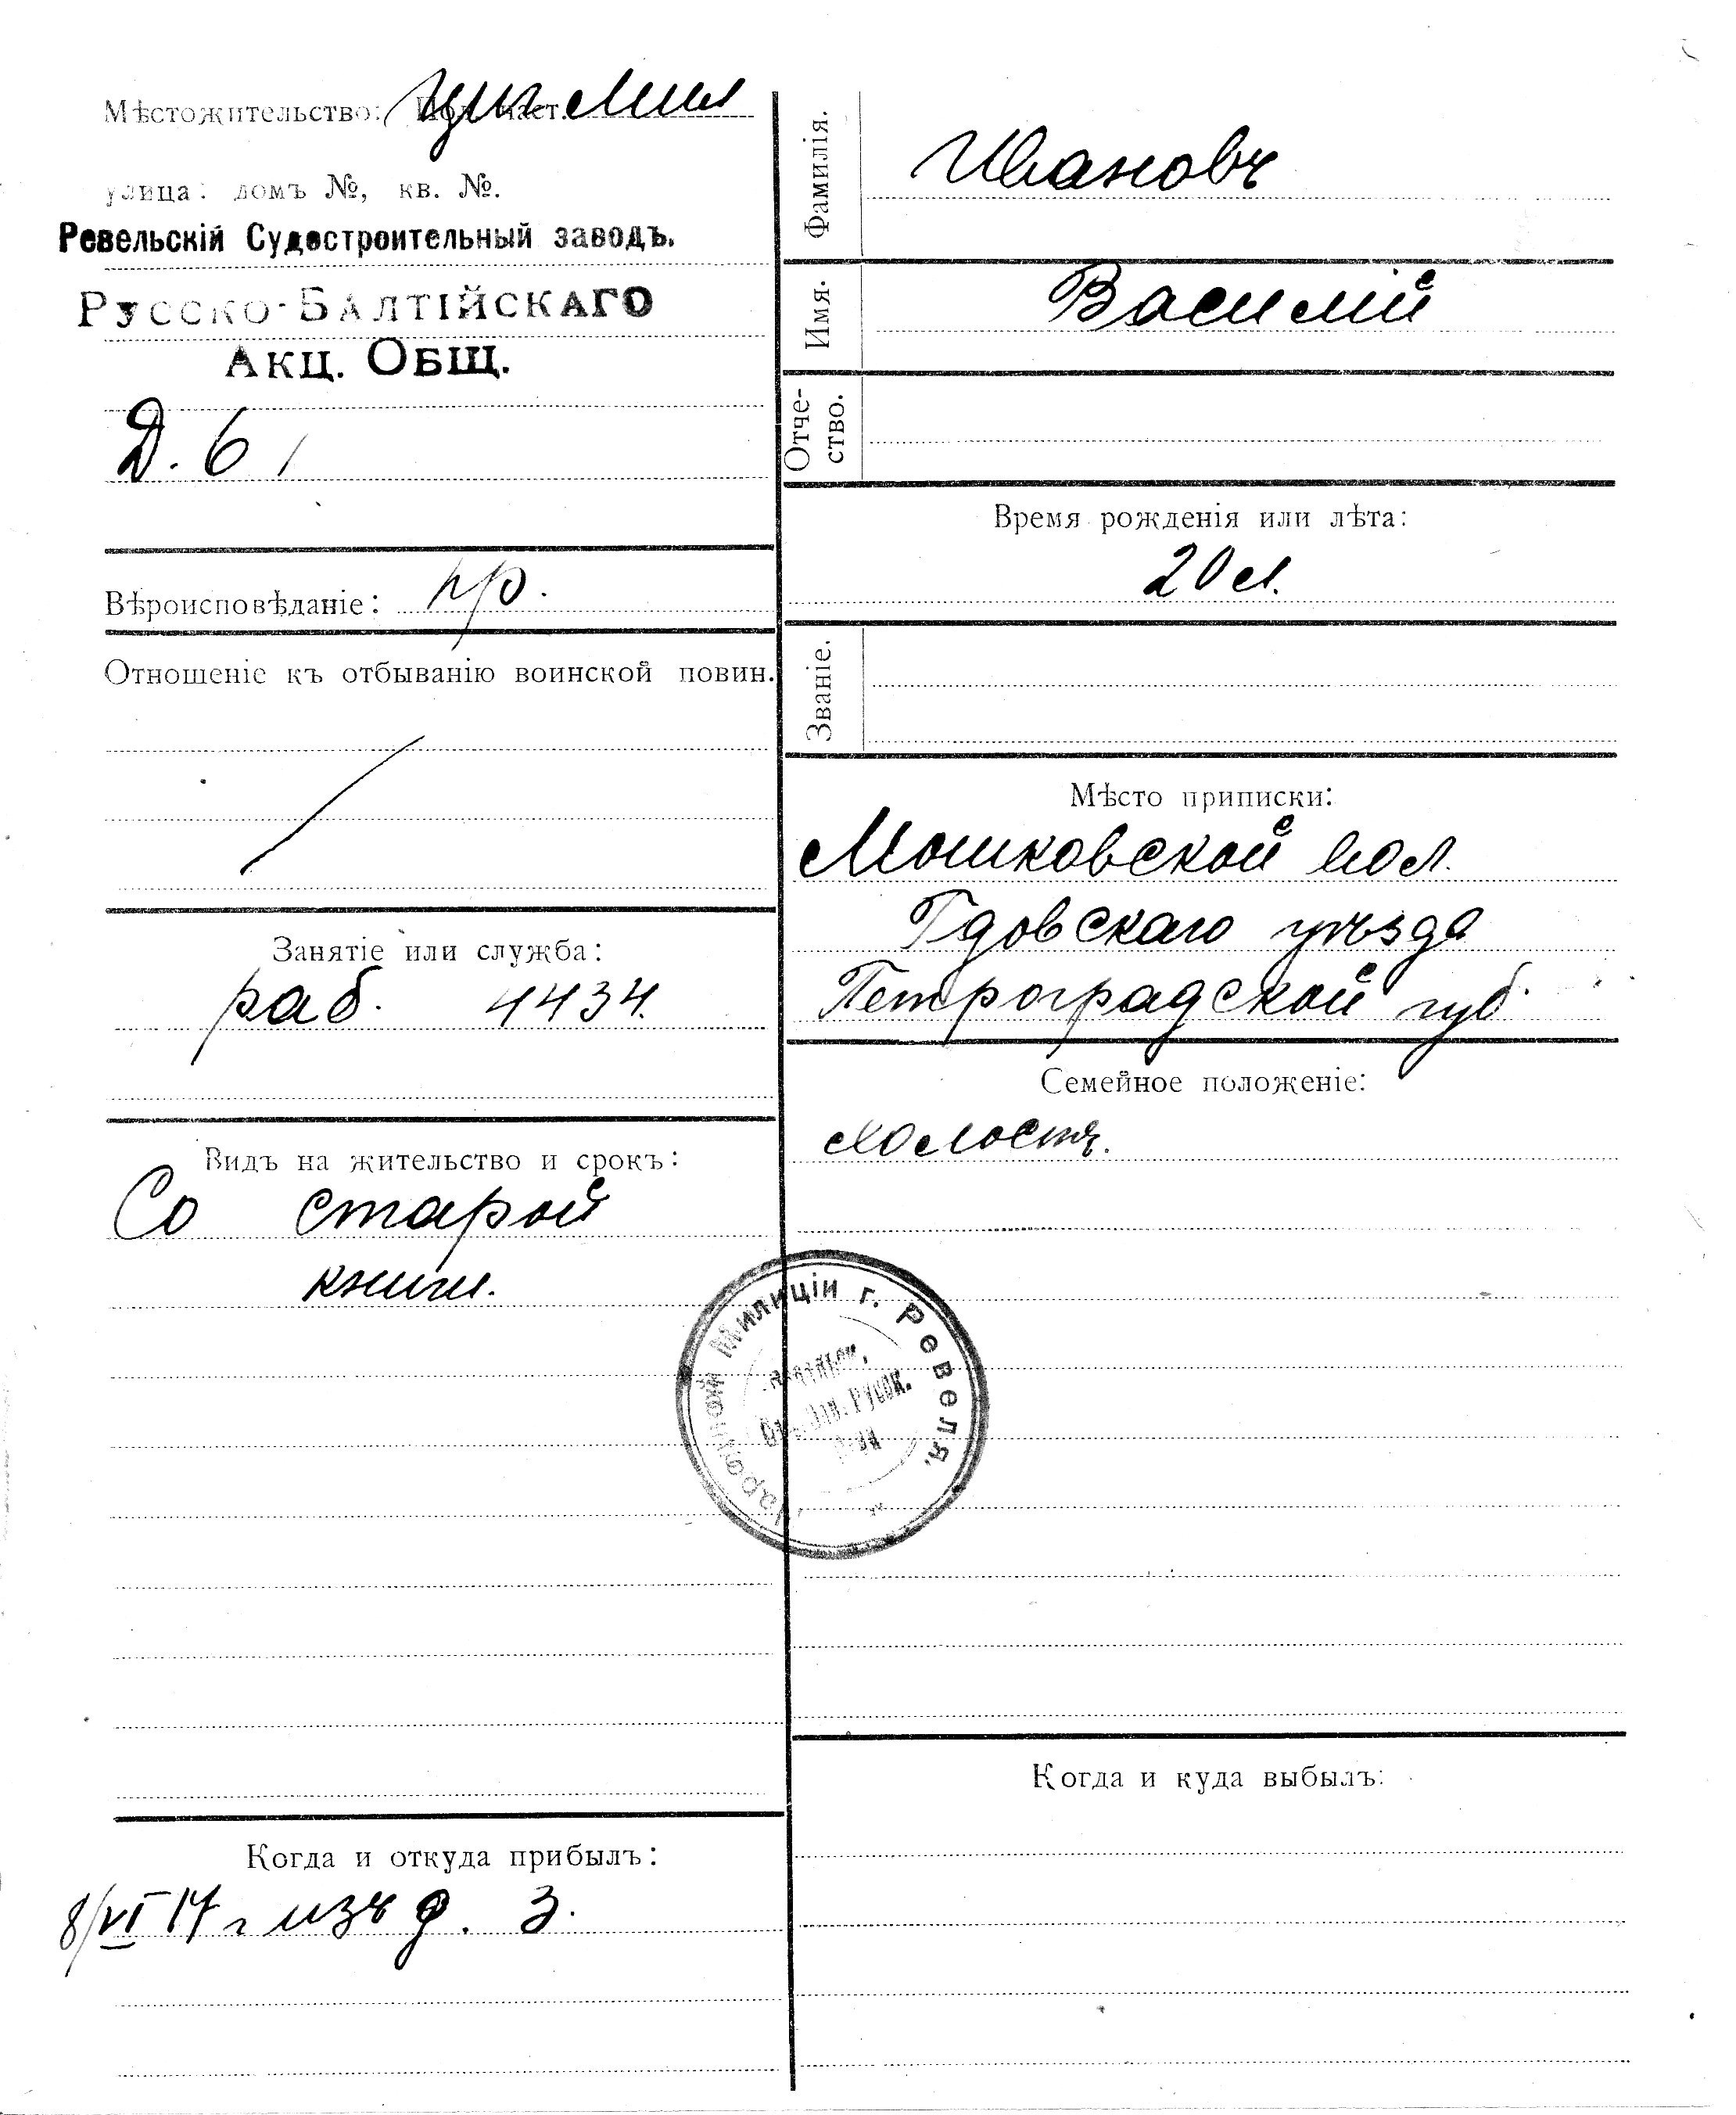 Мѣстожительство:
улица: домъ №, кв. №.
Ревельскій Судостроительный заводъ.
Русско-Балтійскаго
Акц. Общ.
Д. 6
Вѣроисповѣданіе: пр.
Отношеніе къ отбыванію воинской повин.
Занятіе или служба:
раб. 4434.
Видъ на жительство и срокъ:
Со старой
книги.
Когда и откуда прибылъ:
8/VI 17 г изъ д. 3.
Фамилія. Ивановъ
Имя. Василій
Отче-
ство.
Время рожденія или лѣта:
20 л.
Званіе.
Мѣсто приписки:
Мошковской вол.
Гдовскаго уѣзда
Петроградской губ.
Семейное положеніе:
холостъ.
Народной Милиціи г. Ревеля.
Когда и куда выбылъ: